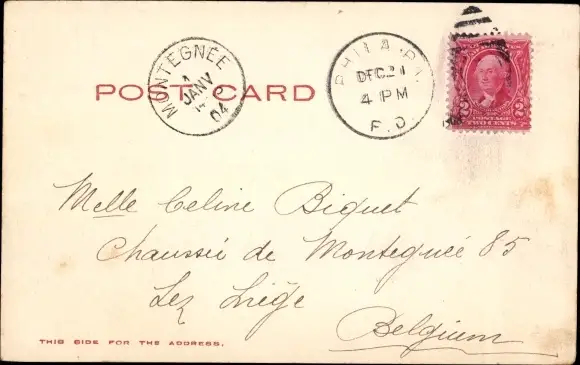 POST CARD
MONTEGNÉE
JANV
04
PHILA. PA.
DEC 21
4 PM
F.D.
2 2
POSTAGE
TWO CENTS
Melle Celine Biquet
Chaussée de Montegnée 85
Lez Liége
Belgium
THIS SIDE FOR THE ADDRESS.